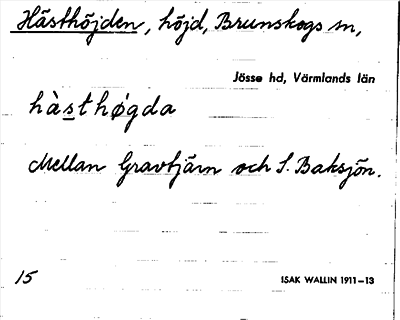 Hästhöjden, höjd, Brunskogs sn,
Jösse hd, Värmlands län
hàsthø̀gda
Mellan Gravtjärn och S. Baksjön.
15
ISAK WALLIN 1911–13